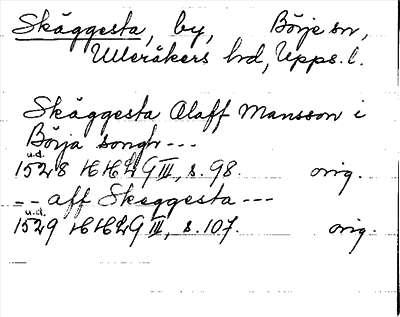 Skäggesta, by, Börje sn,
Ulleråkers hd, Upps. l.
Skäggesta Olaff Mansson i
Börja songh ---
u.d.
1528 HHLG III, s. 98. orig.
-- aff Skeggesta ---
u.d.
1529 HHLG III, s. 107. orig.